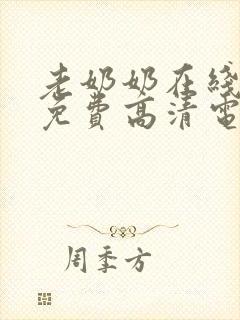 老奶奶在线
免费高清电
周季方